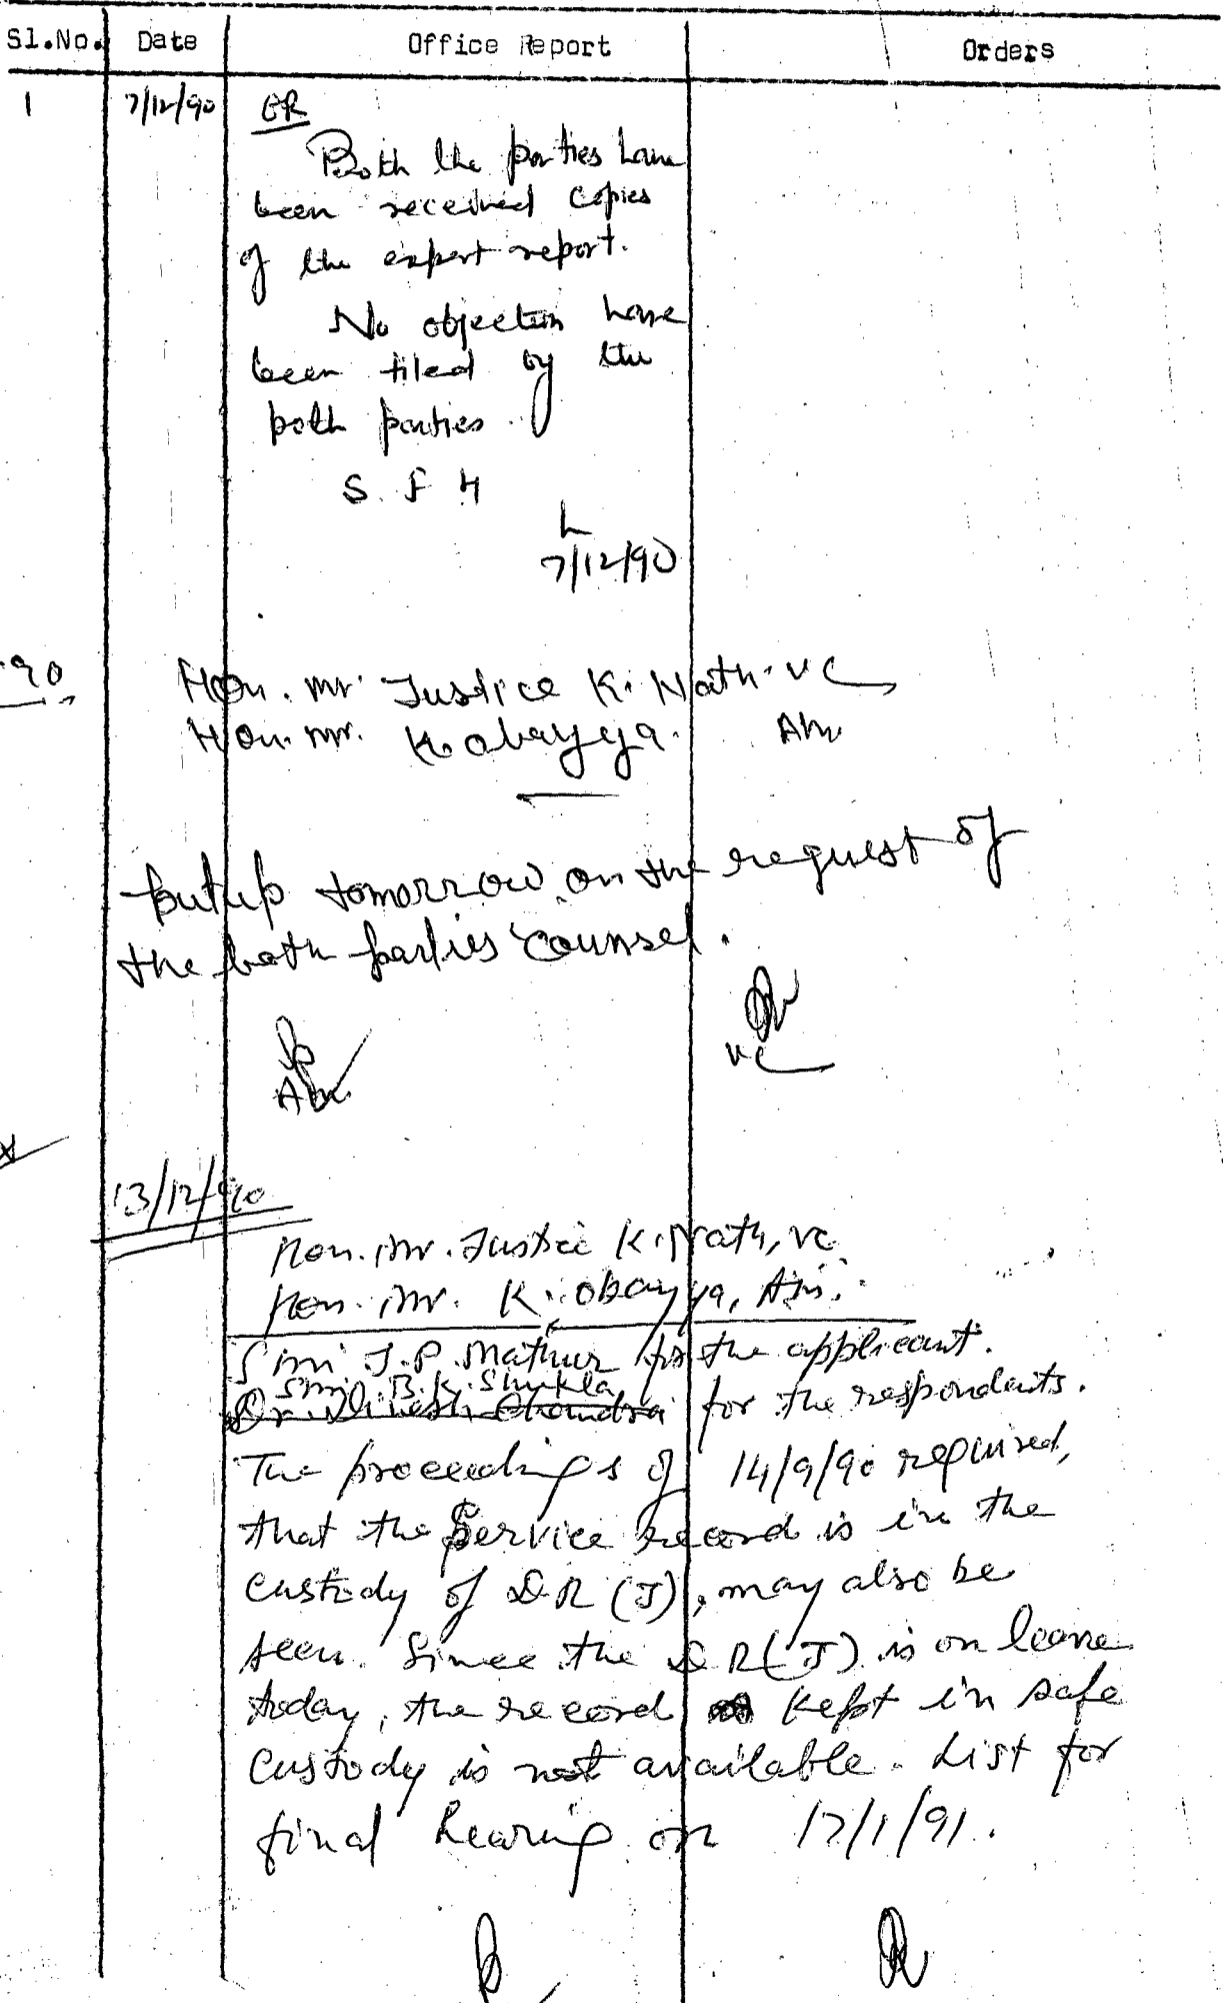 Sl.No. Date Office Report Orders
1 7/12/90 OR
Both the parties have
been received copies
of the expert report.
No objection have
been filed by the
both parties.
S. F H
7/12/90
90
Hon. Mr. Justice K. Nath. VC
Hon. Mr. K. obayya. AM
Put up tomorrow on the request of
the both parties counsel.
VC
AM
13/12/90
Hon. Mr. Justice K. Nath, VC.
Hon. Mr. K. obayya, AM.
Shri J.P. Mathur for the applicant.
Shri B.K. Shukla
Dr. Dinesh Chandra for the respondents.
The proceedings of 14/9/90 required,
that the Service record is in the
custody of D.R (J), may also be
seen. Since the D.R (J) is on leave
today, the record kept in safe
custody is not available. List for
final hearing on 17/1/91.